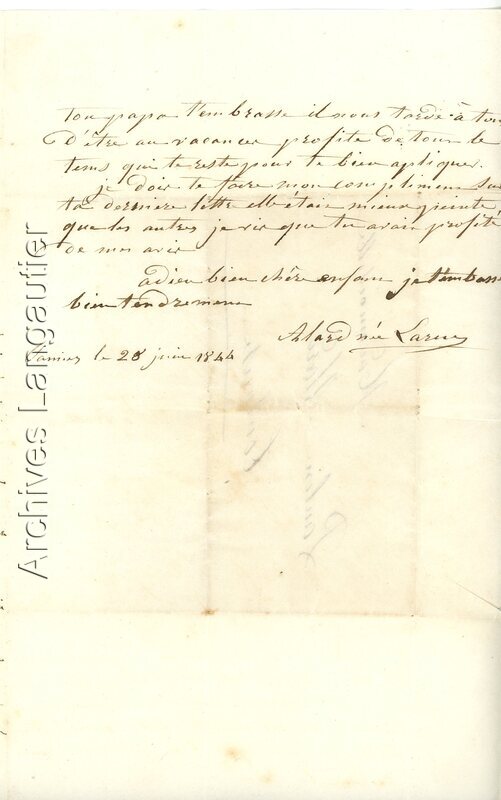 ton papa t'embrasse il nous tarde à tous
d'être au vacances profite de tout le
tems qui te reste pour te bien apliquer.
je dois te faire mon compliment sur
ta derniere lettre elle était mieux peinte
que les autres je vis que tu avais profité
de mes avis
adieu bien chère enfant je t'embrasse
bien tendrement
Alard née
le 28 juin 1844
Archives Langautier